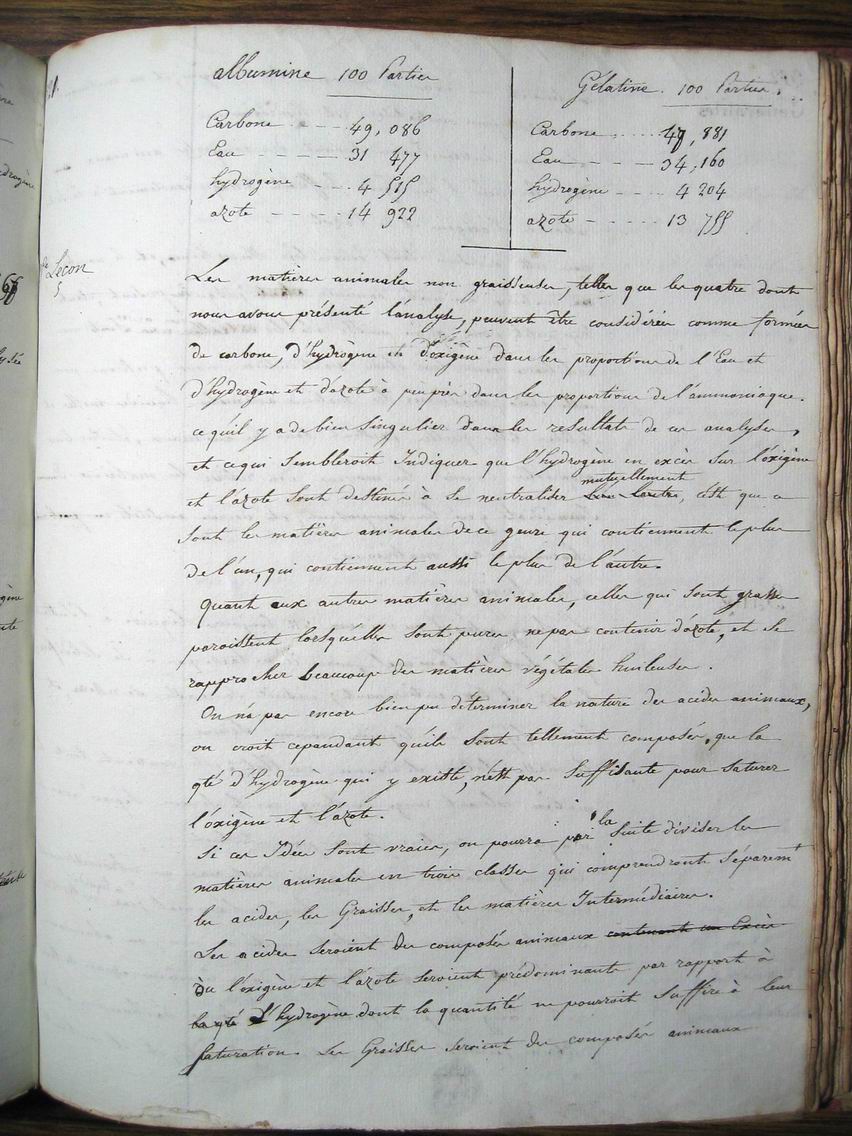 albumine 100 Parties
Carbone - - - 49, 086
Eau - - - - 31 477
hydrogène - - - 4 515
azote - - - - 14 922
Gélatine. 100 Parties.
Carbone - - - 47, 881
Eau - - - 34, 160
hydrogène - - - 4 204
azote - - - - 13 755
Leçon
5
Les matieres animales non graisseuses, telles que les quatre dont
nous avons présenté l'analyse, peuvent être considérées comme formées
de carbone, d'hydrogène et d'oxigène dans les proportions de l'Eau et
d'hydrogène et d'azote à peu près dans les proportions de l'ammoniaque.
ce qu'il y a de bien singulier dans les resultats de ces analyses,
et ce qui sembleroit Indiquer que l'hydrogène en excès sur l'oxigène
et l'azote sont destinés à se neutraliser mutuellement, c'est que ce
sont les matières animales de ce genre qui contiennent le plus
de l'un, qui contiennent aussi le plus de l'autre.
Quant aux autres matières animales, celles qui sont grasses
paroissent lorsqu'elles sont pures ne pas contenir d'azote, et se
rapprocher beaucoup des matières végétales huileuses.
On n'a pas encore bien pu déterminer la nature des acides animaux,
on croit cependant qu'ils sont tellement composés, que la
qté d'hydrogène qui y existe, n'est pas suffisante pour saturer
l'oxigène et l'azote.
Si ces Idées sont vraies, on pourra par la suite diviser les
matières animales en trois classes qui comprendront séparemt
les acides, les Graisses, et les matières Intermédiaires.
Les acides seroient des composés animaux contenants un Excès
où l'oxigène et l'azote seroient prédominants par rapport à
la qté d'hydrogène dont la quantité ne pourroit suffire à leur
saturation. Les Graisses seroient des composés animaux